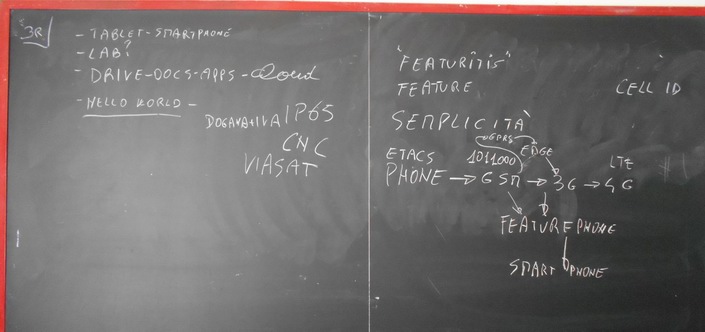 3R
- TABLET - SMARTPHONE
- LAB?
- DRIVE - DOCS - APPS - Cloud
- HELLO WORLD -
IP65
CNC
VIASAT
"FEATURITIS"
FEATURE
CELL ID
SEMPLICITÀ
GPRS
EDGE
ETACS
1011000
LTE
PHONE → GSM → 3G → 4G
FEATUREPHONE
SMARTPHONE